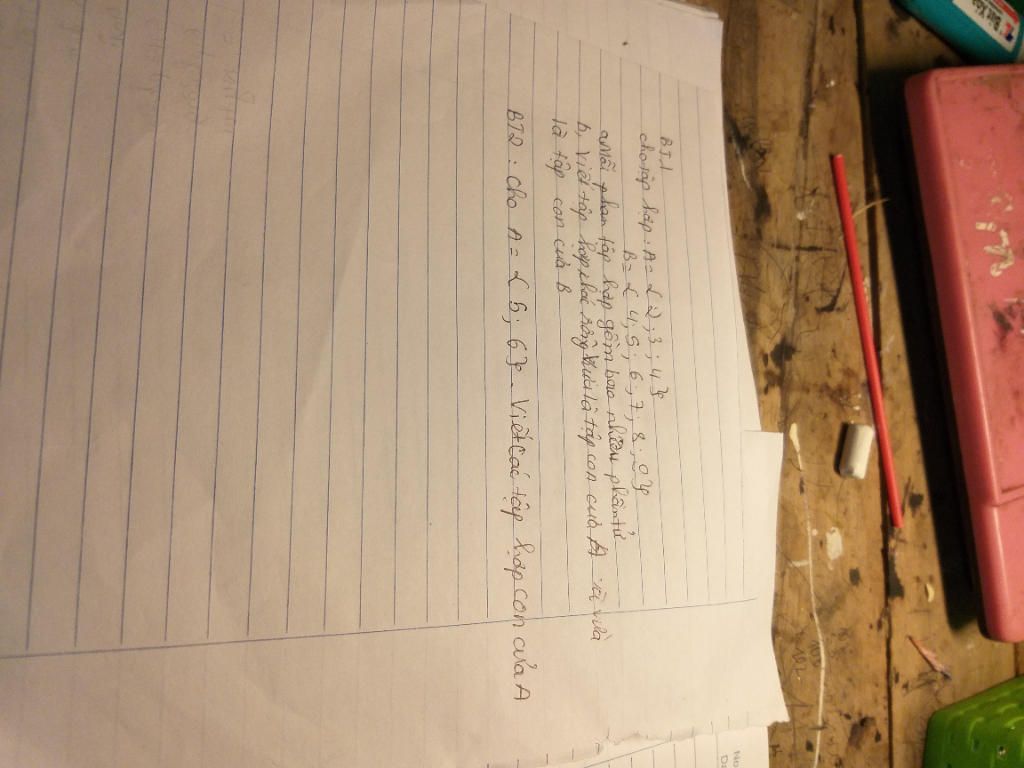 BT1
cho tập hợp: A = { 2; 3; 4}
B = { 4; 5; 6; 7; 8; 0}
a, Mỗi tập hợp gồm bao nhiêu phần tử
b, Viết tập hợp khác rỗng vừa là tập con của A và vừa
là tập con của B
BT2: cho A = { 5; 6}. Viết các tập hợp con của A
No